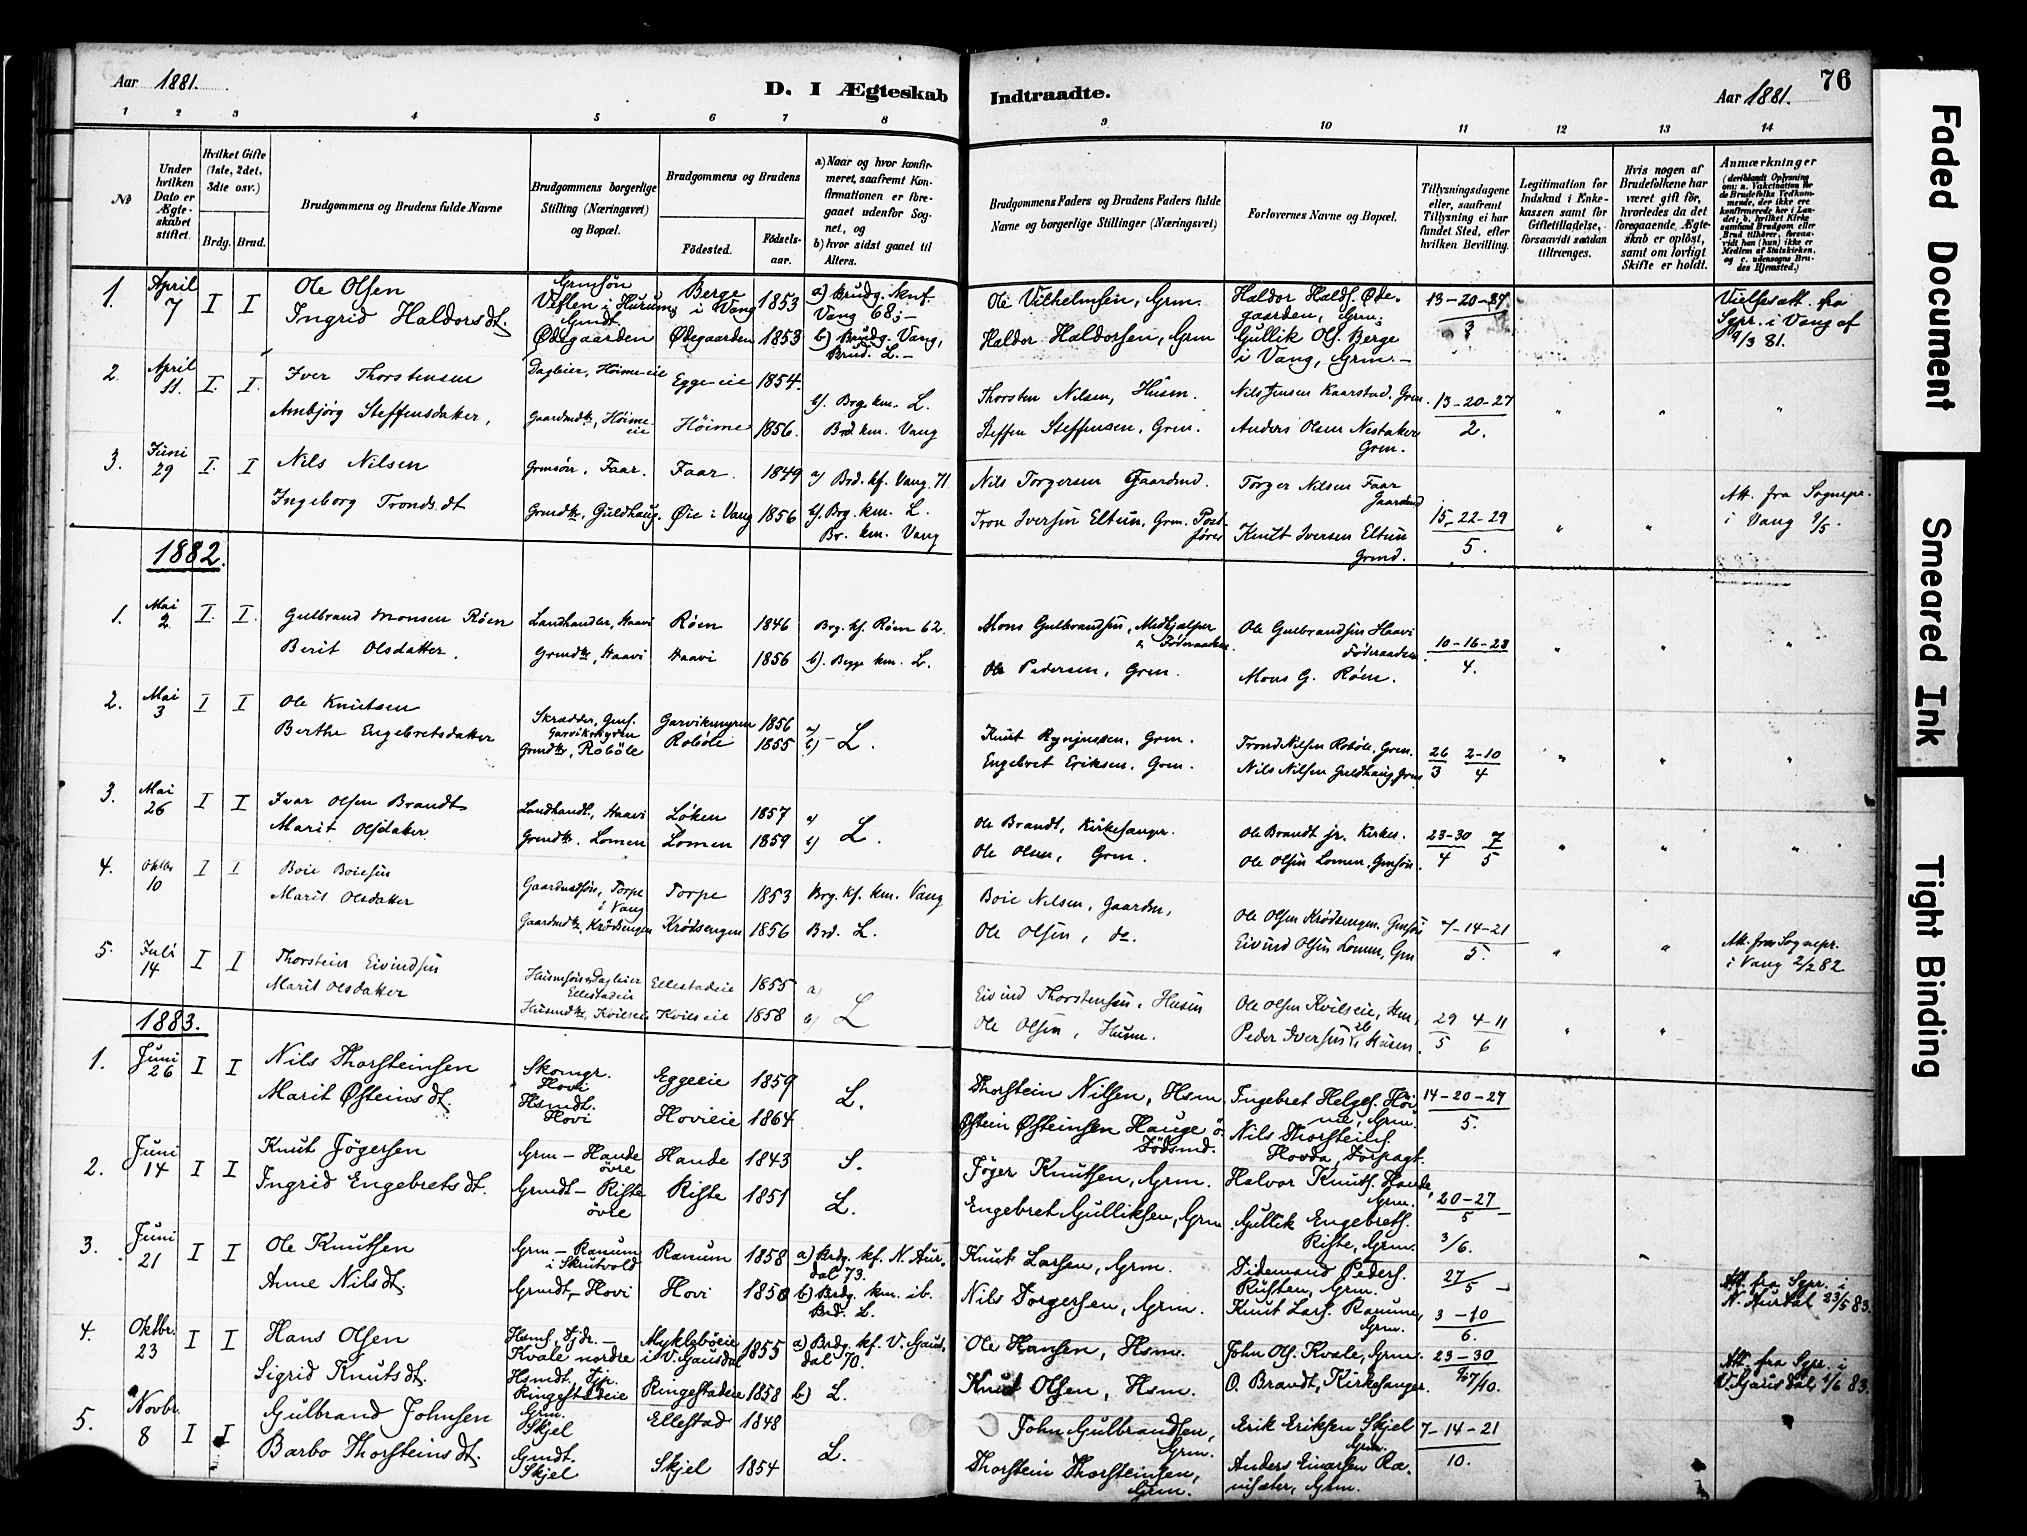 Aar 1881.
D. I Ægteskab
Indtraadte.
Aar 1881.
76
1 2 3 4 5 6 7 8 9 10 11 12 13 14
No
Under hvilken Dato er Ægteskabet stiftet.
Hvilket Gifte (1ste, 2det, 3die osv.)
Brdg. Brud.
Brudgommens og Brudens fulde Navne
Brudgommens borgerlige Stilling (Næringsvei) og Bopæl.
Brudgommens og Brudens
Fødested.
Fødselsaar.
a) Naar og hvor konfirmeret, saafremt Konfirmationen er foregaaet udenfor Sognet, og
b) hvor sidst gaaet til Alters.
Brudgommens Faders og Brudens Faders fulde Navne og borgerlige Stillinger (Næringsvei)
Forlovernes Navne og Bopæl.
Tillysningsdagene eller, saafremt Tillysning ei har fundet Sted, efter hvilken Bevilling.
Legitimation for Indskud i Enkekassen samt for Giftetilladelse, forsaavidt saadan tiltrænges.
Hvis nogen af Brudefolkene har været gift før, hvorledes da det foregaaende Ægteskab er opløst, samt om lovligt Skifte er holdt.
Anmærkninger
(deriblandt Oplysning om: a. Vakcination for de Brudefolks Vedkommende, der ikke ere konfirmerede her i Landet; b. hvilket Kirkesamfund Brudgom eller Brud tilhører, forsaavidt han (hun) ikke er Medlem af Statskirken, og c. udensogns Brudes Hjemsted.)
1. April 7 I I Ole Olsen Grmsøn Berge i Vang 1853 a) Brudg. knf. Vang 68;- Ole Vilhelmsen, Grm. Haldor Halds. Ødegaarden, Grm; 13-20-27 3 Vielsesatt. fra Sgpr. i Vang af 9/3 81.
Ingrid Haldorsdt. Grmdt. Ødegaarden Ødegaarden 1853 b) Brudg. Vang, Brud. L.- Haldor Haldorsen, Grm Gullik Ols. Berge i Vang, Grm.-
2. April 11. I. I. Iver Thorstensen Dagleier, Höime-eie Egge-eie 1854. Thorsten Nilsen, Husm. Nils Jensen Kaarstad, Grm. 13-20-27 2. " " "
Ambjörg Steffensdatter, Gaardmdtr, Höime-eie Höime 1856. b). Brg. km. L. Brd. km. Vang Steffen Steffensen, Grm. Anders Olsen Nestaker Grm.
3. Juni 29 I. I Nils Nilsen Grmsön, Faar. Faar. 1849 a) Brd. kf. Vang. 71 Nils Torgersen Gaardmd. Torger Nilsen Faar Gaardmd 15-22-29 5. " " Att. fra Sognepr. i Vang 9/5.
Ingeborg Tronds.dt Grmdtr, Guldhaug. Øie i Vang 1856 b). Brg. km. L. Br. km. Vang Tron Iversen Eltun, Grm. Postförer Knut Iversen Eltun Grmd.
1882.
1. Mai 2 I. I. Gulbrand Monsen Röen Landhandler, Haavi Röen 1846 Brg. kf. Röen 62. Mons Gulbrandsen, Medhjælper & Föderaadsm. Ole Gulbrandsen Haavi Föderaadsm 10-16-23 4. " " "
Berit Olsdatter. Grmdtr, Haavi Haavi 1856 b). Begge km. L. Ole Pedersen, Grm. Mons G. Röen.
2. Mai 3 I I Ole Knutsen Skrædder, Grms. Garvikmyren Garvikmyren 1856 a) Knut Rynjussen, Grm. Trond Nilsen Roböle, Grm. 26/3 2-10/4 " " "
Berthe Engebretsdatter Grmdtr, Roböle Roböle 1855 b) - L. Engebret Eriksen. Grm. Nils Nilsen Guldhaug Grm
3. Mai 26 I I Ivar Olsen Brandt Landhandl., Haavi Löken 1857 a) Ole Brandt, Kirkesanger. Ole Brandt jr. Kirkes. 23-30/4 7/5 " " "
Marit Olsdatter Grmdtr. Lomen Lomen 1859 b) L. Ole Olsen, Grm. Ole Olsen Lomen, Grmsön.
4. Oktbr 10 I I Boie Boiesen Gaardmdsön, Torpe i Vang Torpe 1853 Brg. kf. km. Vang Boie Nilsen, Gaardm, Ole Olsen Krödsengen. Grmsön 7-14-21 5. " " Att. fra Sognepr. i Vang 2/2 82
Marit Olsdatter Gaardmdtr, Krödsengen Krödsengen 1856 Brd. L. Ole Olsen, do. Eivind Olsen Lomen, Grm
5. Juli 14 I I Thorstein Eivindsen Husmsön & Dagleier Ellestadeie Ellestadeie 1855 a) Eivind Thorstensen, Husm Ole Olsen Kvilseie, Hsm, 29/5 4-11/6 " "
Marit Olsdatter Husmdtr, Kvilseie Kvilseie 1858 b) L Ole Olsen, Husm. Peder Iversen Husm.
1883.
1. Juni 26 I I Nils Thorsteinsen Skomgr. Hovi Eggeeie 1859 L. Thorstein Nilsen, Hsm. Ingebret Helges. Höime, Grm. 14-20-27 5.
Marit Østeinsdt. Hsmdt. Hovi Hovieie 1864 Østein Østeinsen Hauge ö. Födsmd. Nils Thorsteins. Hovda, Forpagt.
2. Juni 14 I I Knut Jögersen Grm - Hande övre Hande 1843 S. Jöger Knutsen, Grm. Halvor Knuts. Hande, Grm. 20-27 5
Ingrid Engebretsdt. Grmdt - Riste övre Riste 1851 L. Engebret Gulliksen, Grm. Gullik Engebrets. Riste, Grm. 3/6.
3. Juni 21 I I Ole Knutsen Grm - Ranum i Skrutvold Ranum 1858 a) Brdg. kf. N. Aurdal 73. Knut Larsen, Grm. Didemand Peders. Rusten, Grm. 27/5 Att. fra Sgpr. i N. Aurdal 23/5 83.
Anne Nilsdt. Grmdt, - Hovi Hovi 1850 b) Brdg. km. ib. Brd. L. Nils Torgersen, Grm. Knut Lars. Ranum, Grm. 3-10 6.
4. Oktbr. 23 I I Hans Olsen Hsms, Tjdr. - Kvale nordre Myklebøeie i V. Gausdal 1855 a) Brdg. kf. V. Gausdal 70. Ole Hansen, Hsm. John Ols. Kvale, Grm. 23-30 Att. fra Sgpr. i V. Gausdal 1/6 83.
Sigrid Knutsdt. Hsmdt, Tjp. Ringestadeie Ringestadeie 1858 b) L. Knut Olsen, Hsm. O. Brandt, Kirkesanger 7/10.
5. Novbr. 8 I I Gulbrand Johnsen Grm. Skjel Ellestad 1848 L. John Gulbrandsen, Grm. Erik Eriksen Skjel Grm. 7-14-21 10.
Barbo Thorsteinsdt. Grmdt. Skjel Skjel 1854 Thorstein Thorsteinsen, Grm. Anders Einarsen Rænisæter, Grm.
Faded Document
Smeared Ink
Tight Binding